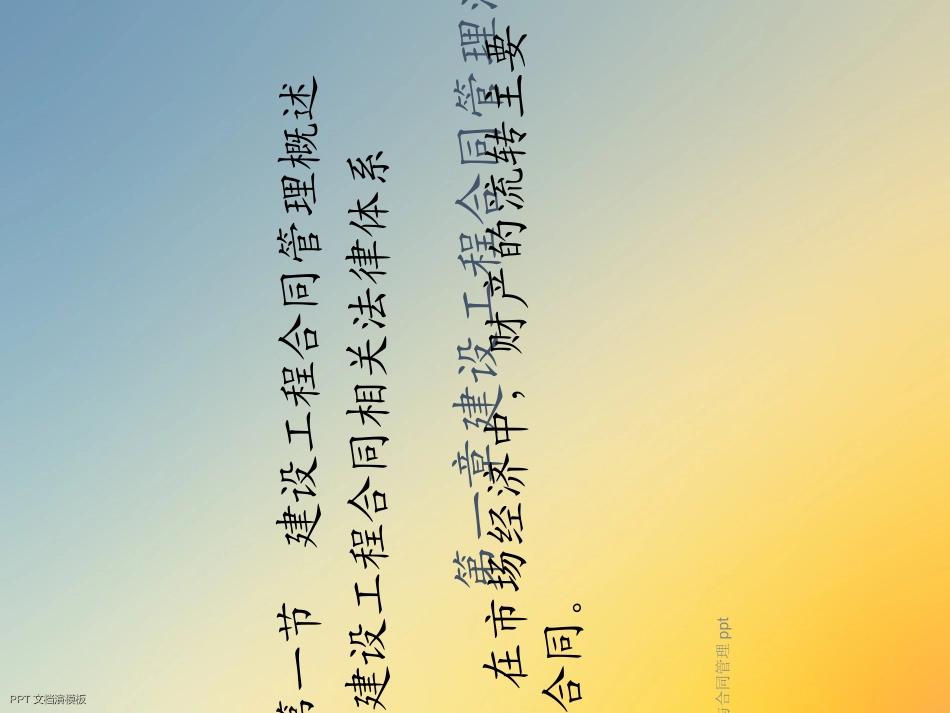 第一节 建设工程合同管理概述
建设工程合同相关法律体系
第一章建设工程合同管理
在市场经济中，财产的流转主要
合同。
与合同管理ppt
PPT文档演模板